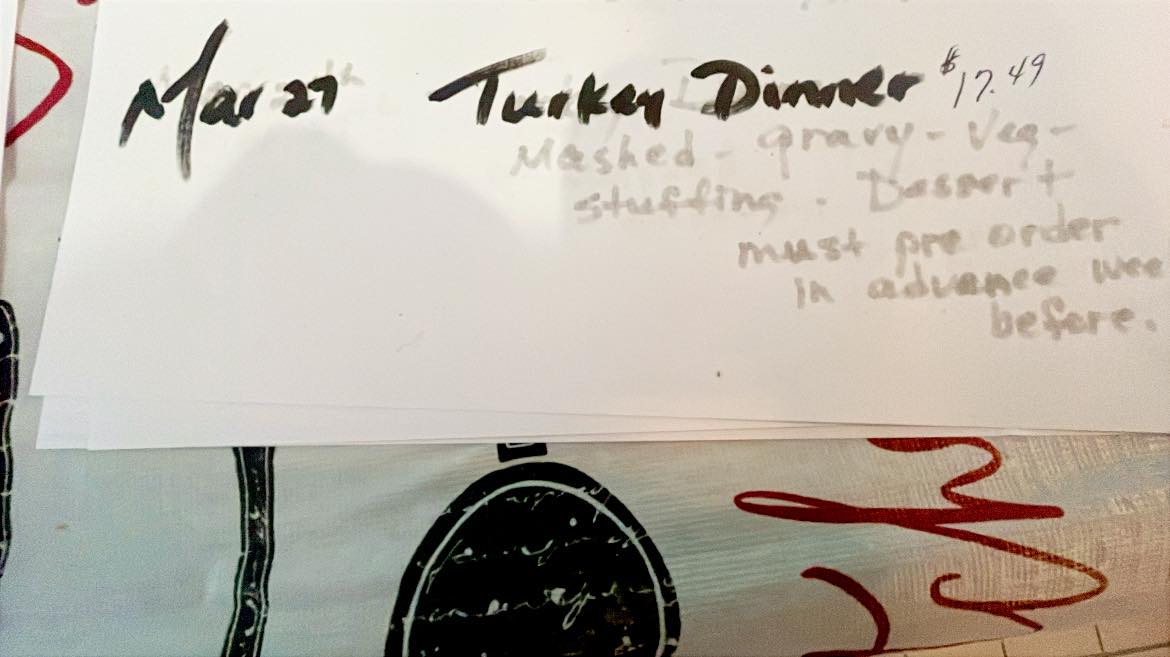 Mar 27 Turkey Dinner $17.49
Mashed - gravy - Veg -
stuffing . Dessert
must pre order
in advance wee
before.